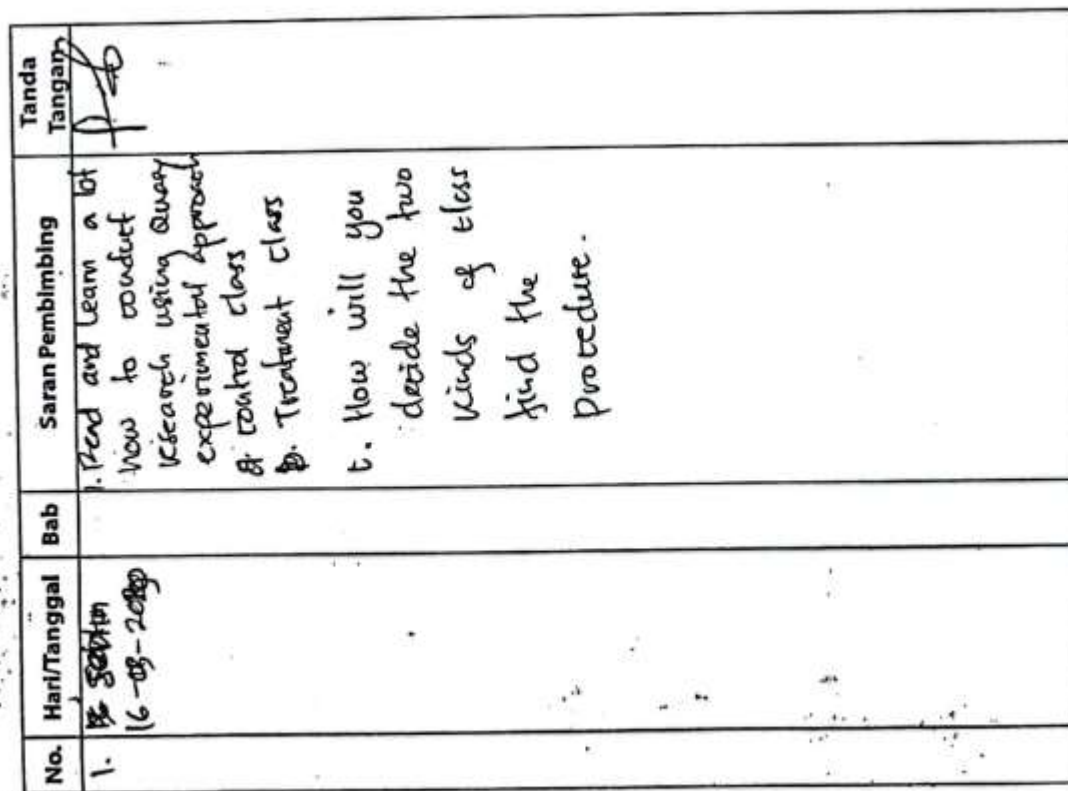 No. Hari/Tanggal Bab Saran Pembimbing Tanda Tangan
1.
16-03-
1. Read and Learn a lot
how to conduct
research using quasy
experimental approach
a. control class
b. Treatment class
c. How will you
decide the two
kinds of class
find the
procedure.